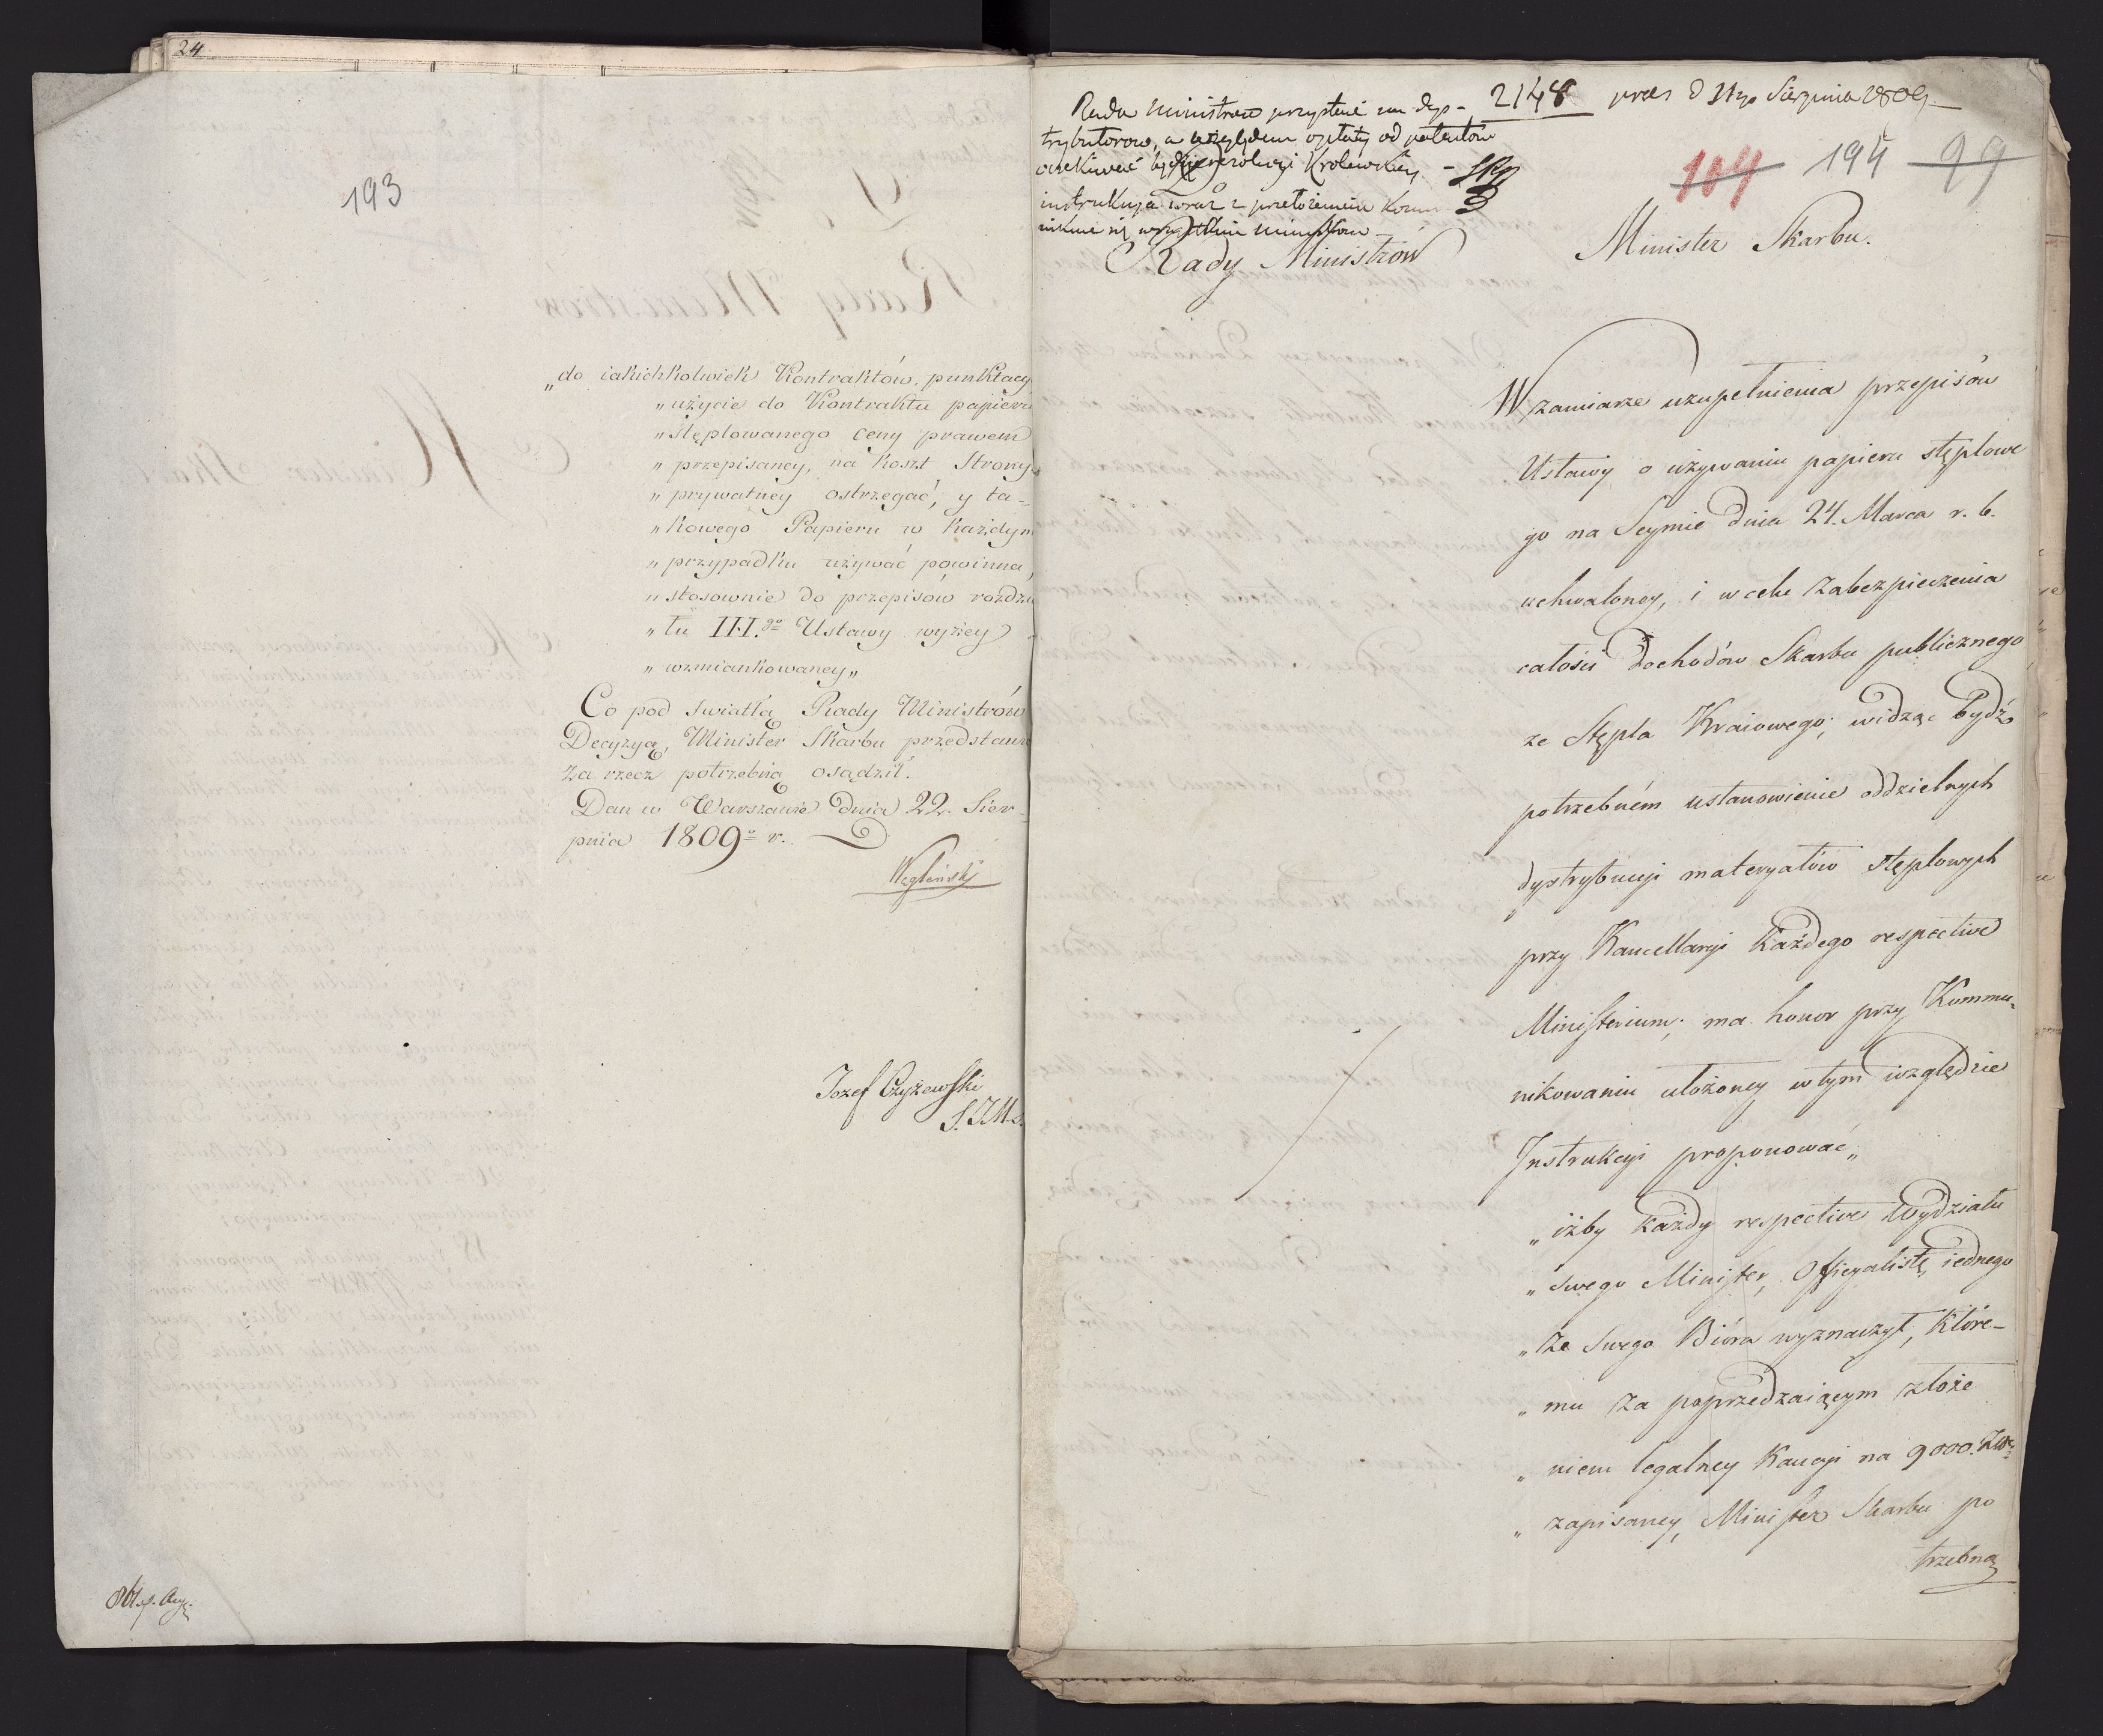 24
193
„do iakichkolwiek Kontraktów, punktacy
„użycie do Kontraktu papieru
„stęplowanego ceny prawem
„przepisaney, na koszt Strony
„prywatney ostrzegać, y ta-
„kowego Papieru w każdym
„przypadku używać powinna,
„stosownie do przepisów rozdzia
„łu III.go Ustawy wyżey
„wzmiankowaney„
Co pod światłą Rady Ministrów
Decyzyą, Minister Skarbu przedstawić
za rzecz potrzebną osądził.
Dan w Warszawie dnia 22. Sier-
pnia 1809o r.
Węgleński
Jozef Czyżewski
S.J.M.S.
2148 prez d 31go Sierpnia 1809
Rada Ministrow przystaie na dys-
trybutorow, a względem opłaty od patentów
oczekiwać będzie rezolucyi Krolewskiey -
instrukcya wraz z przełożeniem Kommu
nikuie się wszystkim ministrom -
104 194 99
Rady Ministrów
Minister Skarbu.
W zamiarze uzupełnienia przepisów
Ustawy o używaniu papieru stęplowe
go na Seymie dnia 24. Marca r. b.
uchwaloney, i w celu zabezpieczenia
całości dochodów Skarbu publicznego
ze Stępla Kraiowego; widząc bydź
potrzebném ustanowienie oddzielnych
dystrybucyi materyałów stęplowych
przy Kancellaryi każdego respective
Ministerium; ma honor przy Kommu-
nikowaniu ułożoney w tym względzie
Instrukcyi proponować„
„iżby każdy respective Wydziału
„swego Minister, Officyalistę iednego
„ze swego Bióra wyznaczył, które-
„mu za poprzedzaiącym złoże
„niem legalney Kaucyi na 9000. Złp.
„zapisaney, Minister Skarbu po
trzebną